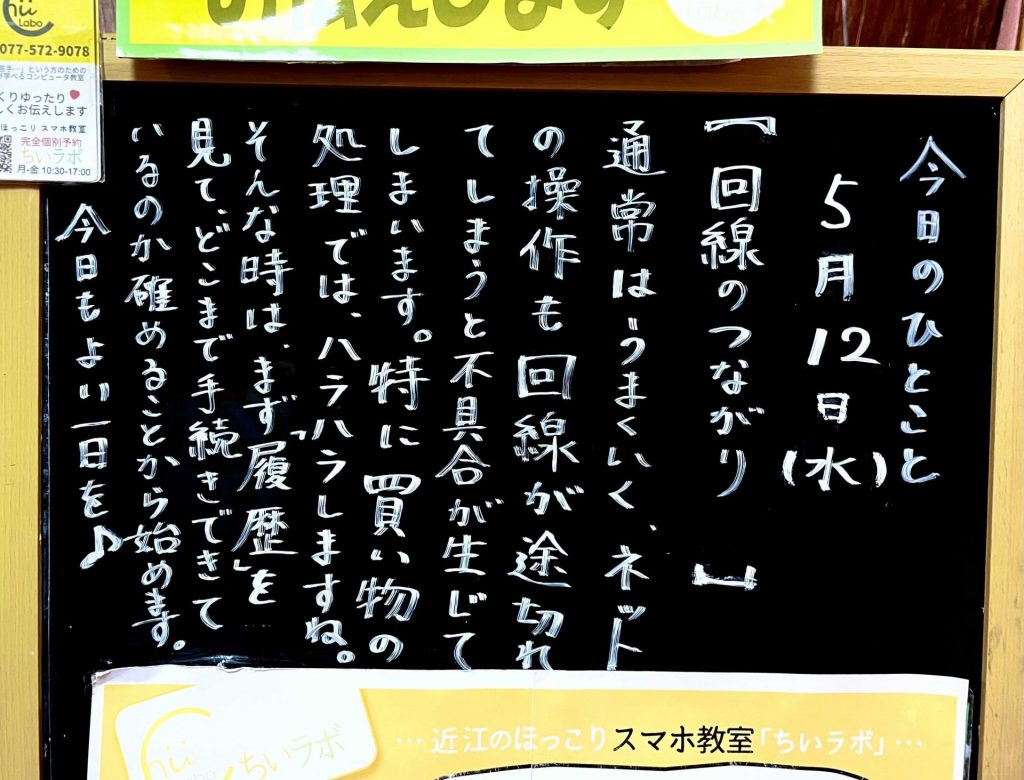 お伝えします
hii
Labo
077-572-9078
という方のための
学べるコンピュータ教室
くりゆったり
しくお伝えします
ほっこり スマホ教室
完全個別予約
ちいラボ
月-金 10:30-17:00
今日のひとこと
5月12日(水)
【回線のつながり】
通常はうまくいく、ネット
の操作も回線が途切れ
てしまうと不具合が生じて
しまいます。特に買い物の
処理では、ハラハラしますね。
そんな時は、まず「履歴」を
見て、どこまで手続きできて
いるのか確めることから始めます。
今日もよい一日を♪
…近江のほっこりスマホ教室「ちいラボ」…
hii
Labo
ちいラボ